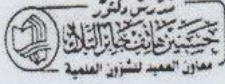 مدرس دكتور
حسنين هاتف جابر التلال
معاون العميد للشؤون العلمية